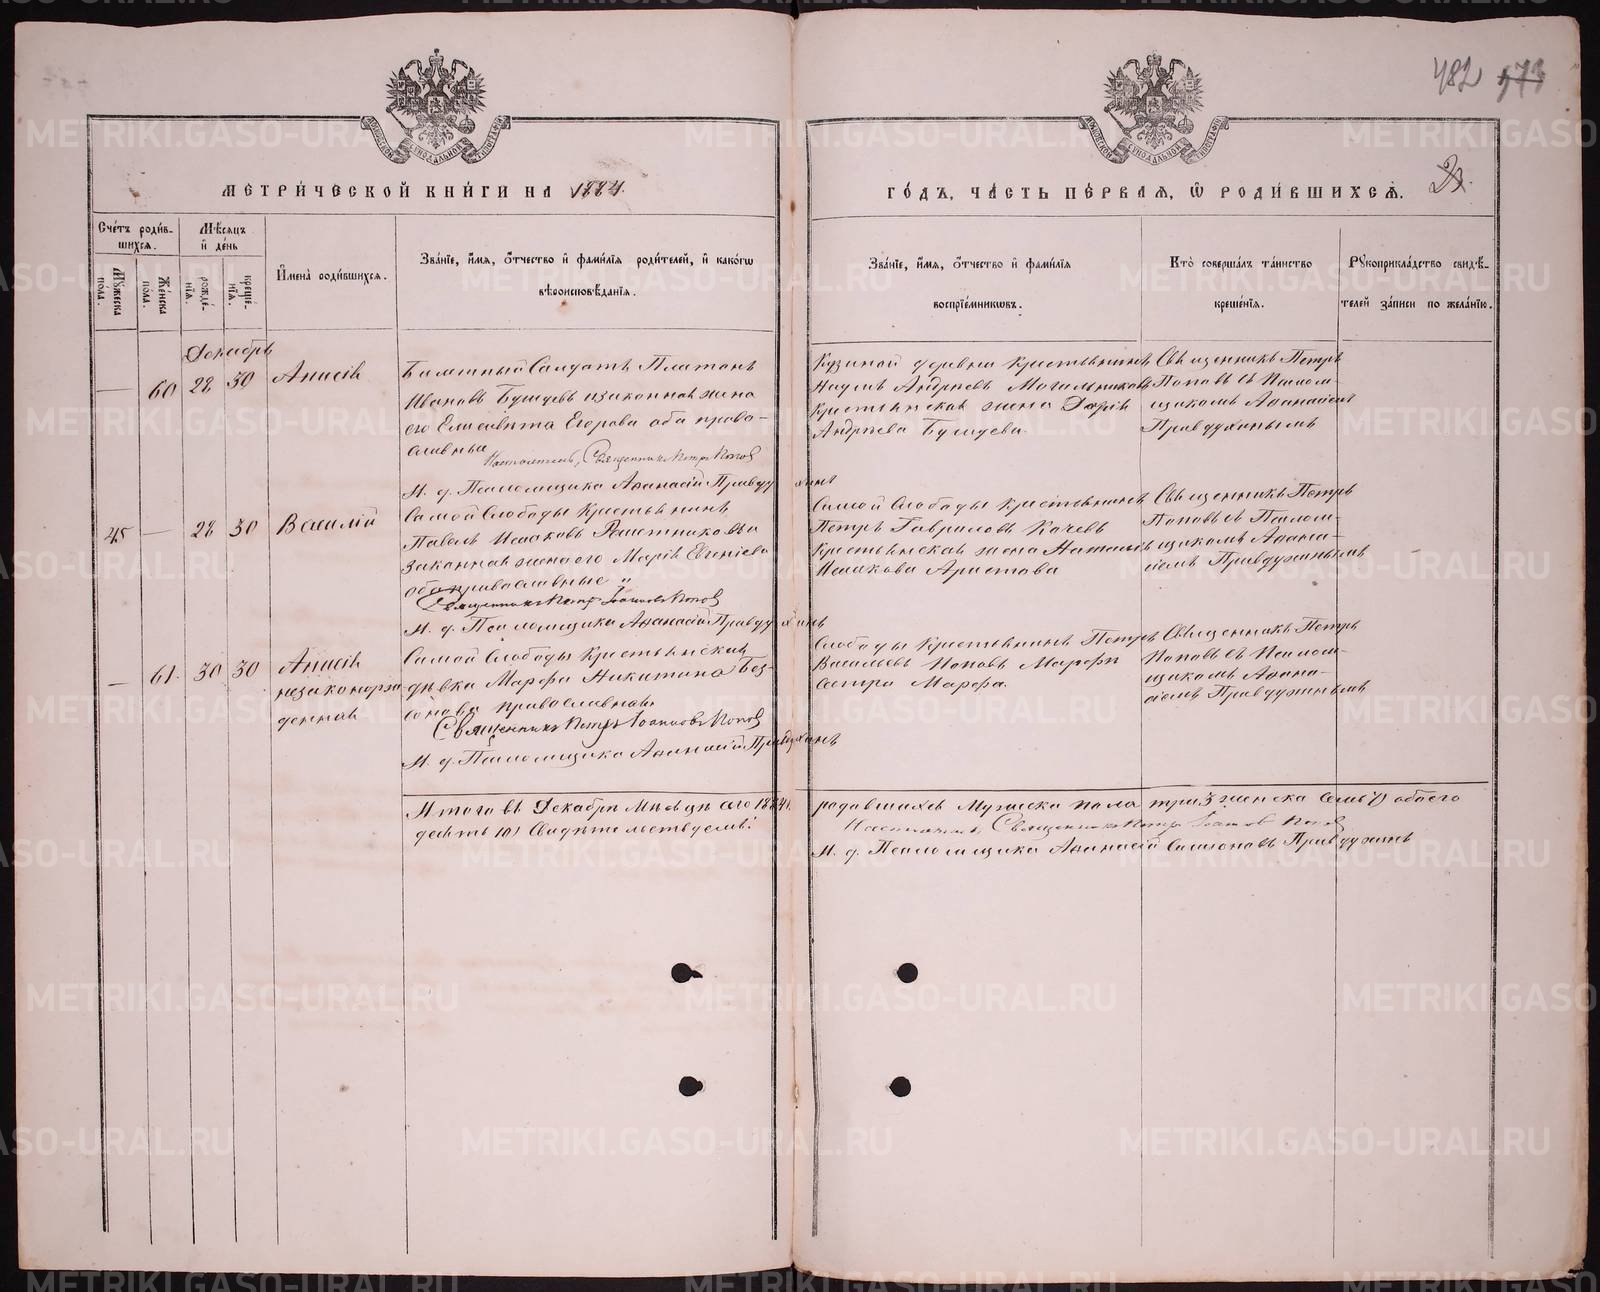 482 573
МЕТРИЧЕСКОЙ КНИГИ НА 1884.
ГОДЪ, ЧАСТЬ ПЕРВАЯ, Ѡ РОДИВШИХСЯ.
Счетъ родившихся.
Мѣсяцъ и день
Имена родившихся.
Званіе, имя, отчество и фамилія родителей, и какогѡ вѣроисповѣданія.
Званіе, имя, отчество и фамилія воспріемниковъ.
Кто совершалъ таинство крещенія.
Рукоприкладство свидѣтелей записи по желанію.
Мужеска пола.
Женска пола.
рожденія.
крещенія.
Декабрь
— 60 28 30 Анисія
Билетный Солдатъ Платонъ
Ивановъ Бушуевъ и законная жена
его Елисавета Егорова оба право-
славныя
Настоятель, Священникъ Петръ Попов
И. д. Псаломщика Аѳанасій Правдухинъ
Кузиной деревни Крестьянинъ
Наумъ Андреевъ Могильниковъ
Крестьянская жена Дарія
Андреева Бушуева
Священникъ Петръ
Поповъ съ Псалом-
щикомъ Аѳанасіемъ
Правдухинымъ
45 — 28 30 Василій
Самой Слободы Крестьянинъ
Павелъ Исааковъ Решетниковъ и
законная жена его Марія Евгеніева
оба православные
Священникъ Петр Іоанновъ Попов
И. д. Псаломщика Аѳанасій Правдухинъ
Самой Слободы Крестьянинъ
Петръ Гавриловъ Качевъ
Крестьянская жена Наталья
Исаакова Аристова
Священникъ Петръ
Поповъ съ Псалом-
щикомъ Аѳана-
сіемъ Правдухинымъ
— 61 30 30 Анисія
незаконорж
денная
Самой Слободы Крестьянская
дѣвка Марѳа Никитина Без-
сонова православная
Священникъ Петръ Іоанновъ Попов
И. д. Псаломщика Аѳанасій Правдухинъ
Слободы Крестьянинъ Петръ
Васильевъ Поповъ Марѳы
сестра Марѳа.
Священникъ Петръ
Поповъ съ Псалом-
щикомъ Аѳана-
сіемъ Правдухинымъ
Итого въ Декабрѣ Мѣсяцѣ сего 1884 г. родившихся Мужеска пола три 3 женска семь 7) обоего
десять 10) Свидѣтельствуемъ:
Настоятель, Священникъ Петр Іоаннов Попов
И. д. Псаломщика Аѳанасій Правдухинъ
METRIKI.GASO-URAL.RU